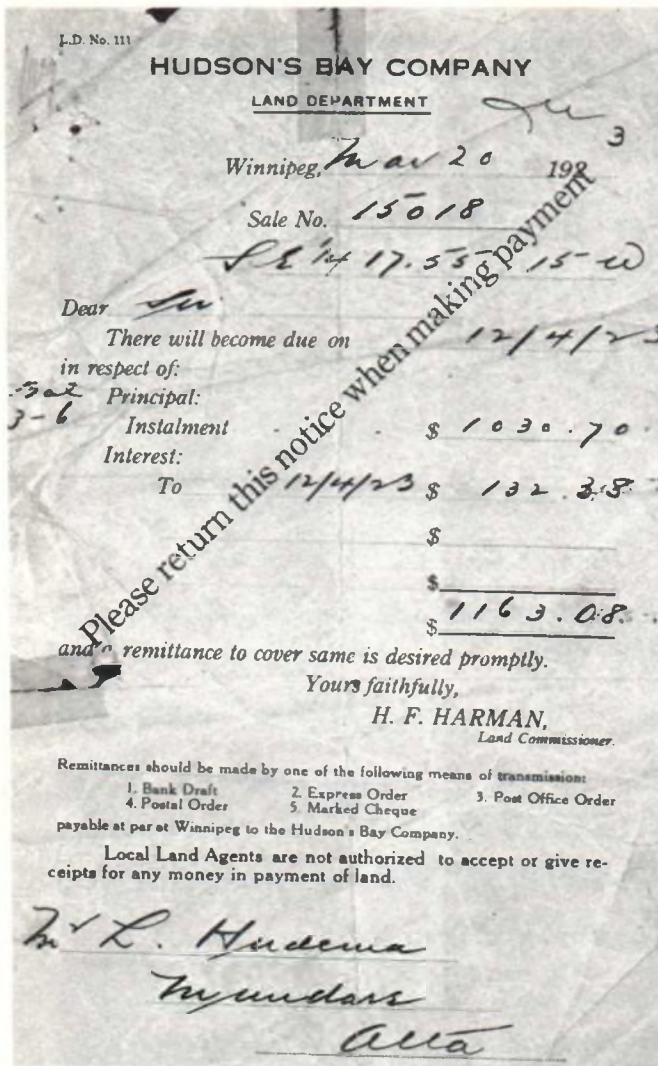 L.D. No. 111
HUDSON'S BAY COMPANY
LAND DEPARTMENT
3
Winnipeg, Mar 20 192
Sale No. 15018
SE 1/4 17.55 15-W
Dear Sir
There will become due on 12/4/23
in respect of:
Principal:
3-6
Instalment $ 1030.70
Interest:
To 12/4/23 $ 132.38
$
$
$ 1163.08
Please return this notice when making payment
and a remittance to cover same is desired promptly.
Yours faithfully,
H. F. HARMAN,
Land Commissioner.
Remittances should be made by one of the following means of transmission:
1. Bank Draft 2. Express Order 3. Post Office Order
4. Postal Order 5. Marked Cheque
payable at par at Winnipeg to the Hudson's Bay Company.
Local Land Agents are not authorized to accept or give re-
ceipts for any money in payment of land.
Mr L. Hudema
Myundare
Alta